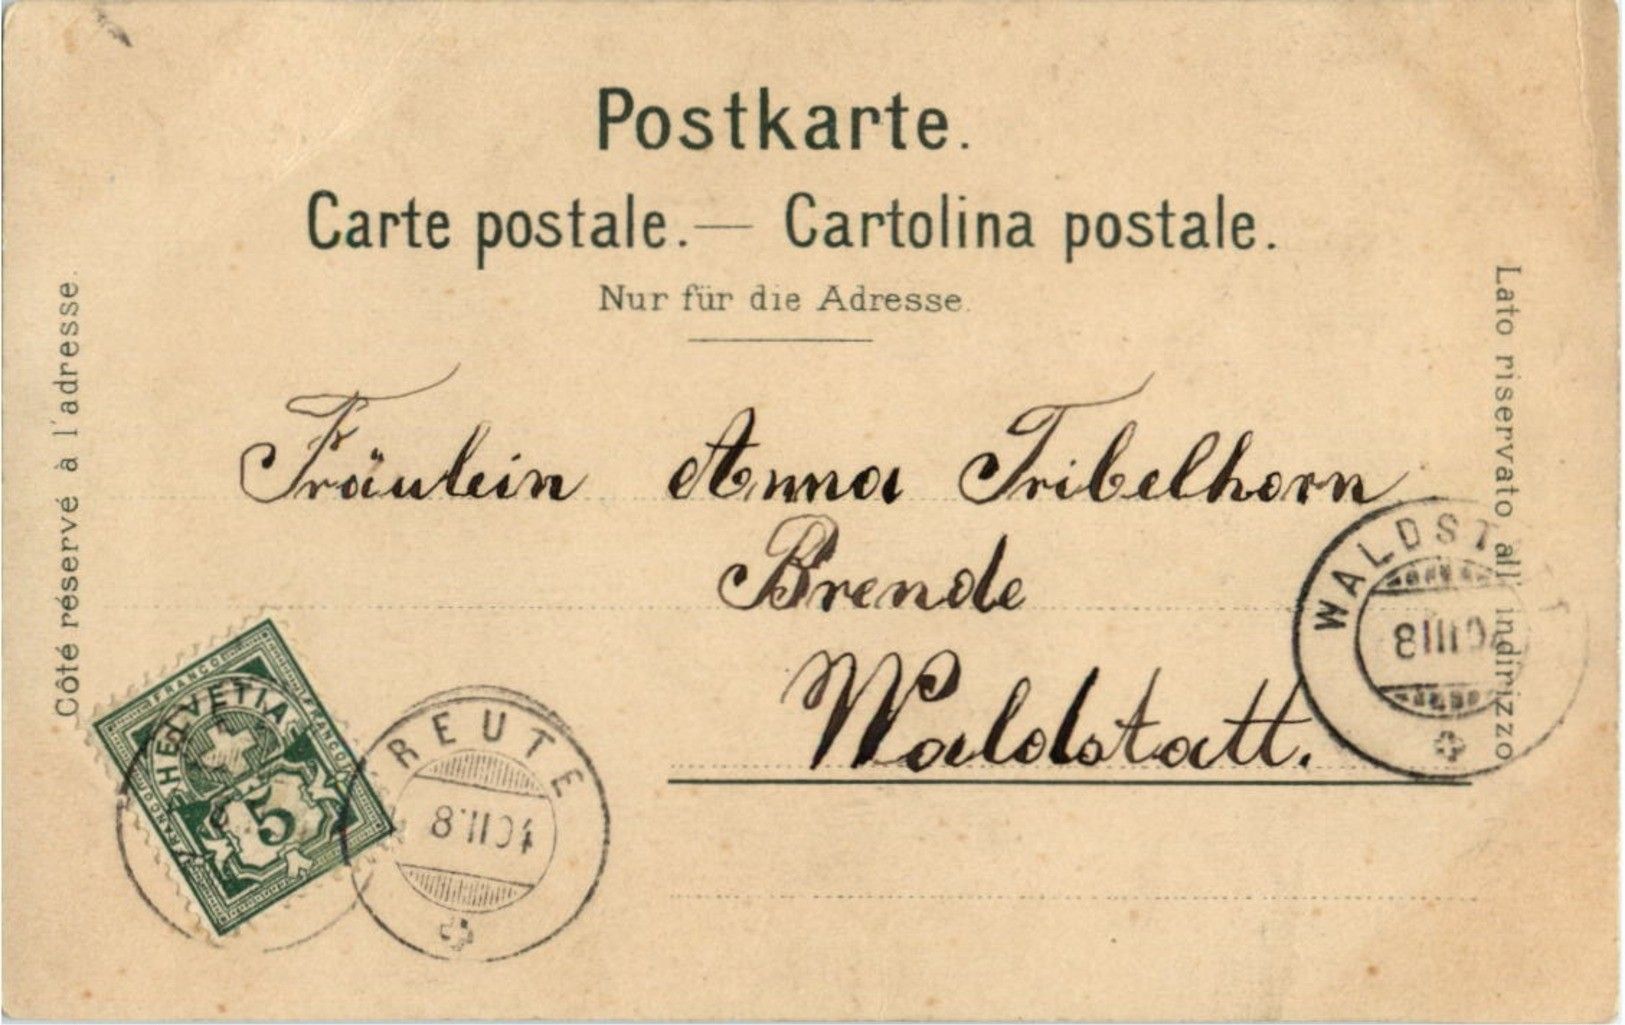 Postkarte.
Carte postale. — Cartolina postale.
Nur für die Adresse.
Côté réservé à l'adresse.
Lato riservato all' indirizzo
Fräulein Anna Tribelhorn
Brende
Waldstatt.
WALDST
8 III
REUTE
8.II.04
HELVETIA
FRANCO FRANCO FRANCO
5